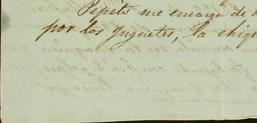 Pepito me encarga de d
por los juguetes, la chiq